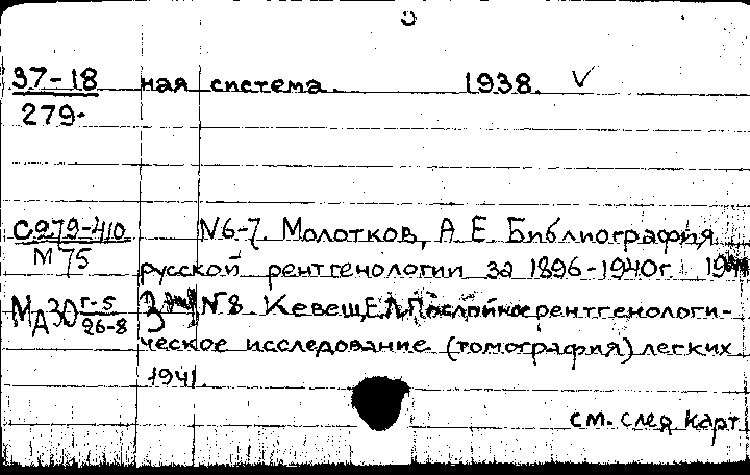 37-18 ная система. 1938. V
279.
С279-410 N6-7. Молотков, А. Е. Библиография
М75
русской рентгенологии за 1896-1940г
МА30 г-5 N8. Кевеш, Е.Л. Послойное рентгенологи-
26-8
ческое исследование (томография) легких
1941.
см. след карт